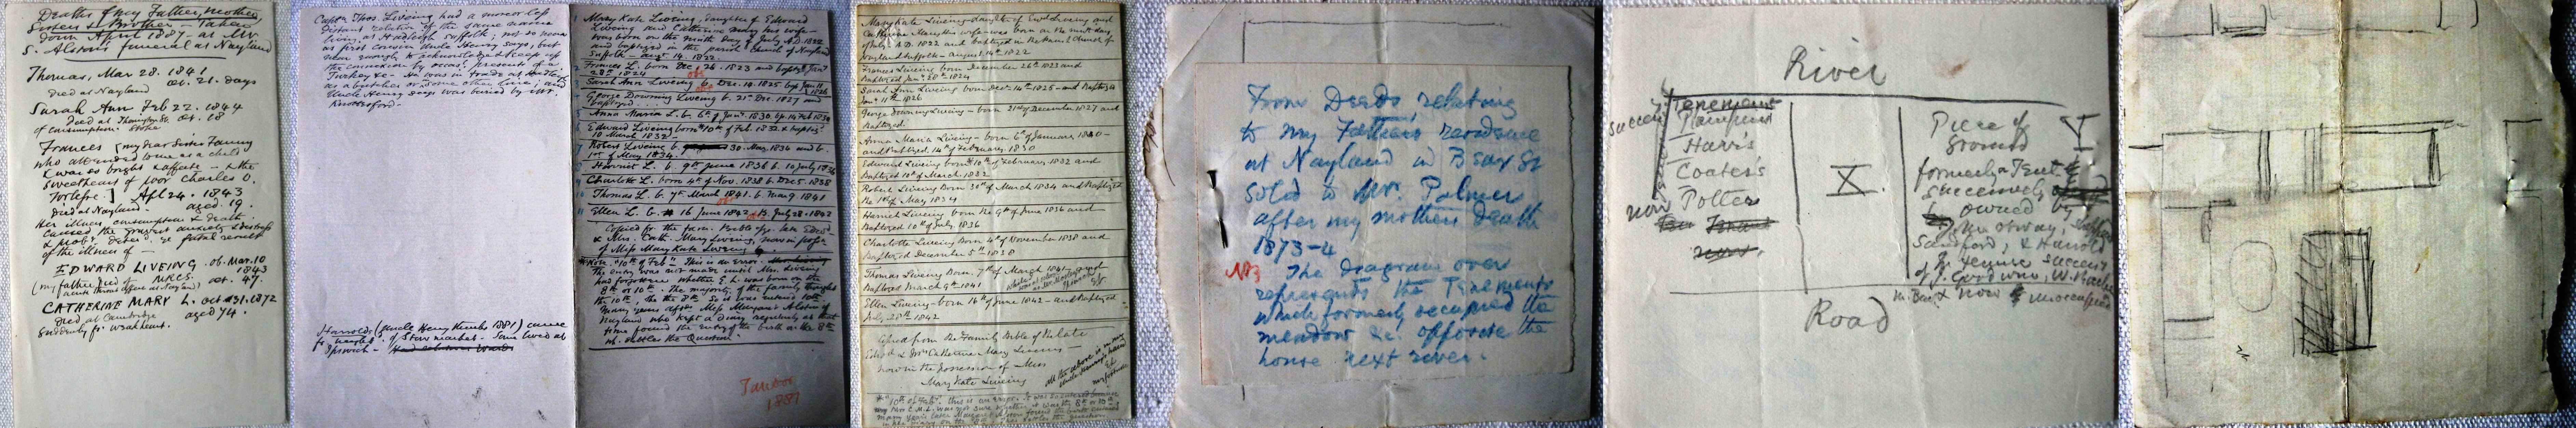 Deaths of my Father, mother
Sisters & Brother - Taken
down April 1887 - as Mr.
S. Alston's funeral at Nayland
Thomas, Mar 28. 1841
died at Nayland ob. 21. days
Sarah Ann Feb 22. 1844
of consumption.
Frances [my dear Sister Fanny
who attended to me as a child
& was so bright & affecte - the
sweetheart of poor Charles O.
Fortefe.] Apl 24. 1843
died at Nayland - aged. 19.
Her illness, consumption & death
caused the greatest anxiety & distress
of the illness of -
EDWARD LIVEING. ob. Mar. 10
1843
(my father, aet. 47.
CATHERINE MARY L. oct 31. 1872
died at Cambridge aged 74.
Suddenly fr. weak heart.
Captn Thos. Liveing had a more or less
distant relation of the same name
living at Hadleigh Suffolk; not so near
as first cousin Uncle Henry says; but
near enough to acknowledge & keep up
the connexion by occasl presents of a
Turkey &c - He was in trade at Hadleigh
as a butcher or some other line; and
Uncle Henry says was buried by Mr.
Knottesford -
Harrolds (Uncle Henry thinks 1881) came
of Stowmarket - Some lived at
Ipswich -
1 Mary Kate Liveing, daughter of Edward
Liveing and Catherine Mary his wife
was born on the Ninth Day of July A.D. 1822
and baptized in the parish Church of Nayland
Suffolk Augt 14. 1822.
2 Frances L. born Dec, 26. 1823 and baptd Jany
28th 1824
3 Sarah Ann Liveing b. Dec. 14. 1825 bp Jan 11
1826
4 George Downing Liveing b. 21st Dec. 1827 and
baptized . . . .
5 Anna Maria L. b. 6th of Jany. 1830. bp. 14 Feb 1830
6 Edward Liveing born *10th of Feb. 1832 & baptd
10 March 1832 -
7 Robert Liveing b. 30. Mar. 1834 and b.
1st of May 1834.
8 Harriet L. b. 9th June 1836 b. 10 July 1836
9 Charlotte L. born 4th of Nov. 1838 b. Dec 5. 1838
10 Thomas L. b. 7th March 1841. b. March 9 1841
11 Ellen L. b. 16 June 1842 - b. July 28. 1842
Copied for the fam. Bible of the late Edwd
& Mrs. Cath. Mary Liveing, now in possn
of Miss Mary Kate Liveing
*Note. "10th of Feb" This is an error.
The entry was not made until Mrs. Liveing
had forgotten whether E L. was born on the
8th or 10th. The majority of the family thought
the 10th, the 8th. So it was entered 10th
Many years after Miss Margaret Alston of
Nayland who kept a diary regularly at that
time found the entry of the birth on the 8th
wh. settles the Question.
1887
Mary Kate Liveing daughter of Edwd Liveing and
Catherine Mary his wife was born on the ninth day
of July A.D. 1822 and baptized in the Parish Church of
Nayland Suffolk - August 14th 1822
Frances Liveing born December 26th 1823 and
Baptized Jany 28th 1824
Sarah Ann Liveing born Decr 14th 1825 - and Baptized
Jany 11th 1826
George Downing Liveing - born 21st of December 1827 and
Baptized.
Anna Maria Liveing - born 6th of January 1830 -
and Baptized 14th of February 1830
Edward Liveing born *10th of February 1832 and
Baptized 10th of March 1832
Robert Liveing Born 30th of March 1834 and Baptized
the 1st of May 1834
Harriet Liveing born the 9th of June 1836 and
Baptized 10th of July 1836
Charlotte Liveing Born 4th of November 1838 and
Baptized December 5th 1838
Thomas Liveing Born 7th of March 1841 and
Baptized March 9th 1841
Ellen Liveing - born 16th of June 1842 - and Baptized
July 28th 1842
Copied from the Family Bible of the late
Edwd & Mrs Catherine Mary Liveing -
now in the possession of Miss
Mary Kate Liveing
From Deeds, relating
to my Father's residence
at Nayland in Bear St
sold to Mr. Palmer
after my mothers death
1873-4
NB
The diagram over
represents the Tenements
which formerly occupied the
meadow &c. opposite the
house next river.
River
Tenement
Harris
Coates's
now Potter
X.
Piece of
Ground
formerly a Tent &
Successively
owned by
Sandford, & Harrold
Road